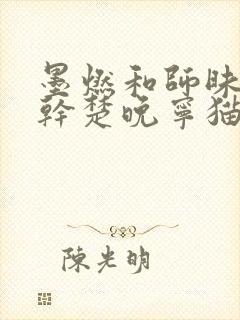 墨燃和師昧
幹楚晚寧猫
陳光明